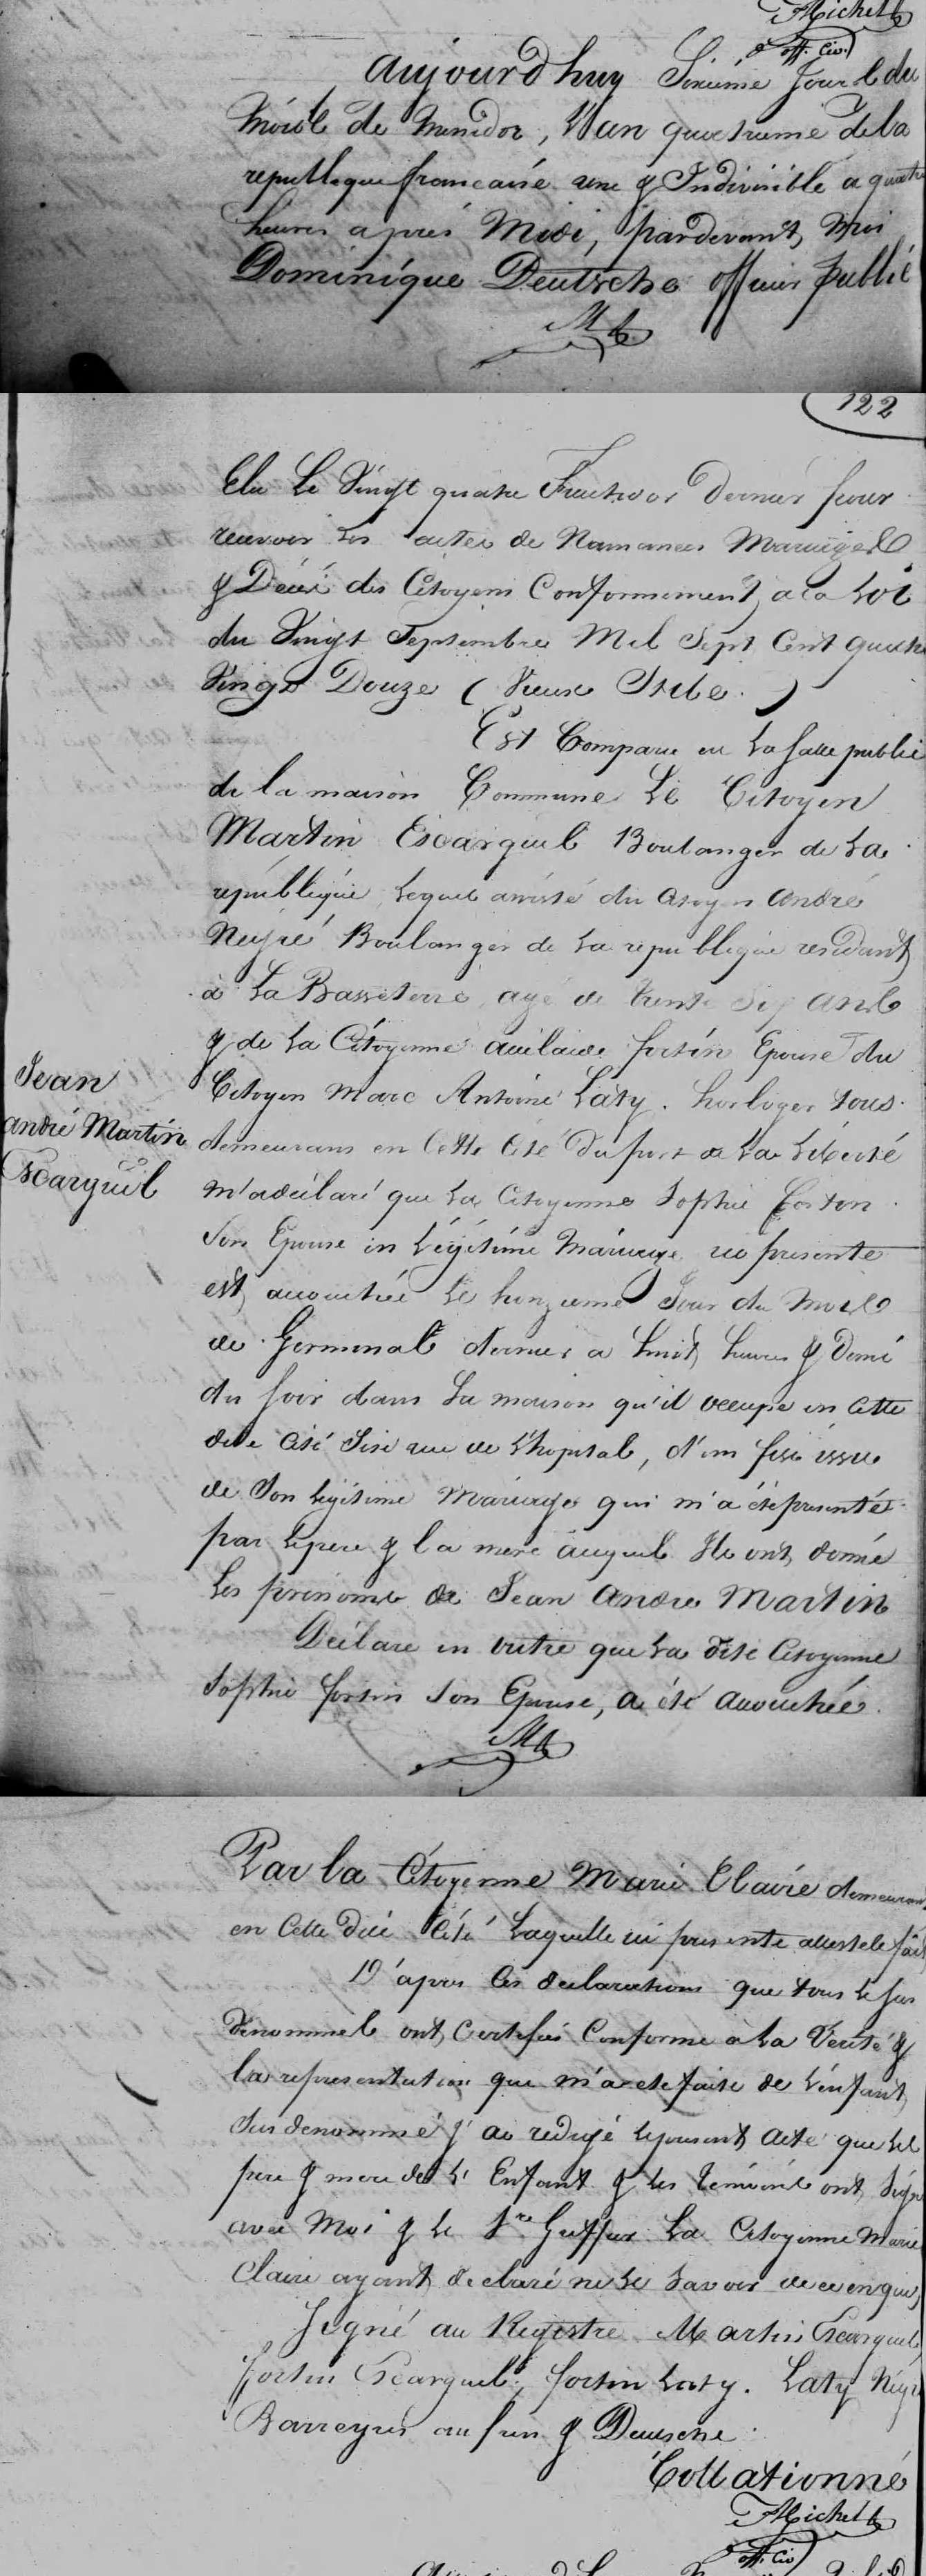 Michel
off. Civ.
aujourd'huy Sixieme jour du
Mois de Messidor, L'an quatrieme de la
republique francaise une & Indivisible a quatre
heures aprés Midi, pardevant moi
Dominique Deutsche officier public
122
Elu Le Vingt quatre Fructidor dernier pour
recevoir les actes de Naissances Mariages
& Décés des Citoyens Conformement a la Loi
du Vingt Septembre Mil Sept Cent quatre
Vingt Douze ( Vieux Stile. )
Est Comparu en la Salle public
de la maison Commune Le Citoyen
Martin Escarguel Boulanger de La
république, Lequel assisté du Citoyen André
Negré Boulanger de La republique residant
à La Basseterre, agé de trente Six ans
& de La Citoyenne Adelaide fortin Epouse du
Citoyen Marc Antoine Laty. horloger tous
demeurans en Cette Cité du port de La Liberté
m'a déclaré que La Citoyenne Sophie fortin
Son Epouse en Légitime Mariage ici presente
est accouchée Le honzieme Jour du Mois
de Germinal dernier a huit heures & Demi
du Soir dans La maison qu'il occupe en Cette
dite Cité Sise rue de L'hopital, d'un fils issu
de Son Légitime Mariage qui m'a été presenté
par Le pere & la mere auquel Ils ont donné
Les prénoms de Jean André Martin
Jean
André Martin
Escarguel
Déclare en outre que La dite Citoyenne
Sophie fortin Son Epouse, a été accouchée
Par la Citoyenne Marie Claire demeurant
en Cette dite Cité Laquelle ici presente atteste le fait
D'apres les declarations que tous Le sus
denommés ont Certifiés Conforme à La Verité &
la representation que m'a ete faite de L'enfant
Sus denommé j'ai redigé Le present acte que Les
pere & mere de L'Enfant & les temoins ont Signé
avec Moi & Le Sre Greffier La Citoyenne Marie
Claire ayant declaré ne Le Savoir de ce enquis
Signé au Registre Martin Escarguel,
fortin Escarguel, fortin Laty. Laty Négré
Barreyres & Deutsche
Collationné
Michel
off. Civ